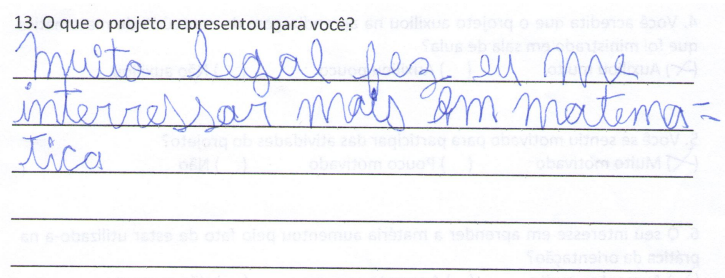 13. O que o projeto representou para você?
Muito legal fez eu me
interressar mais em matema=
tica